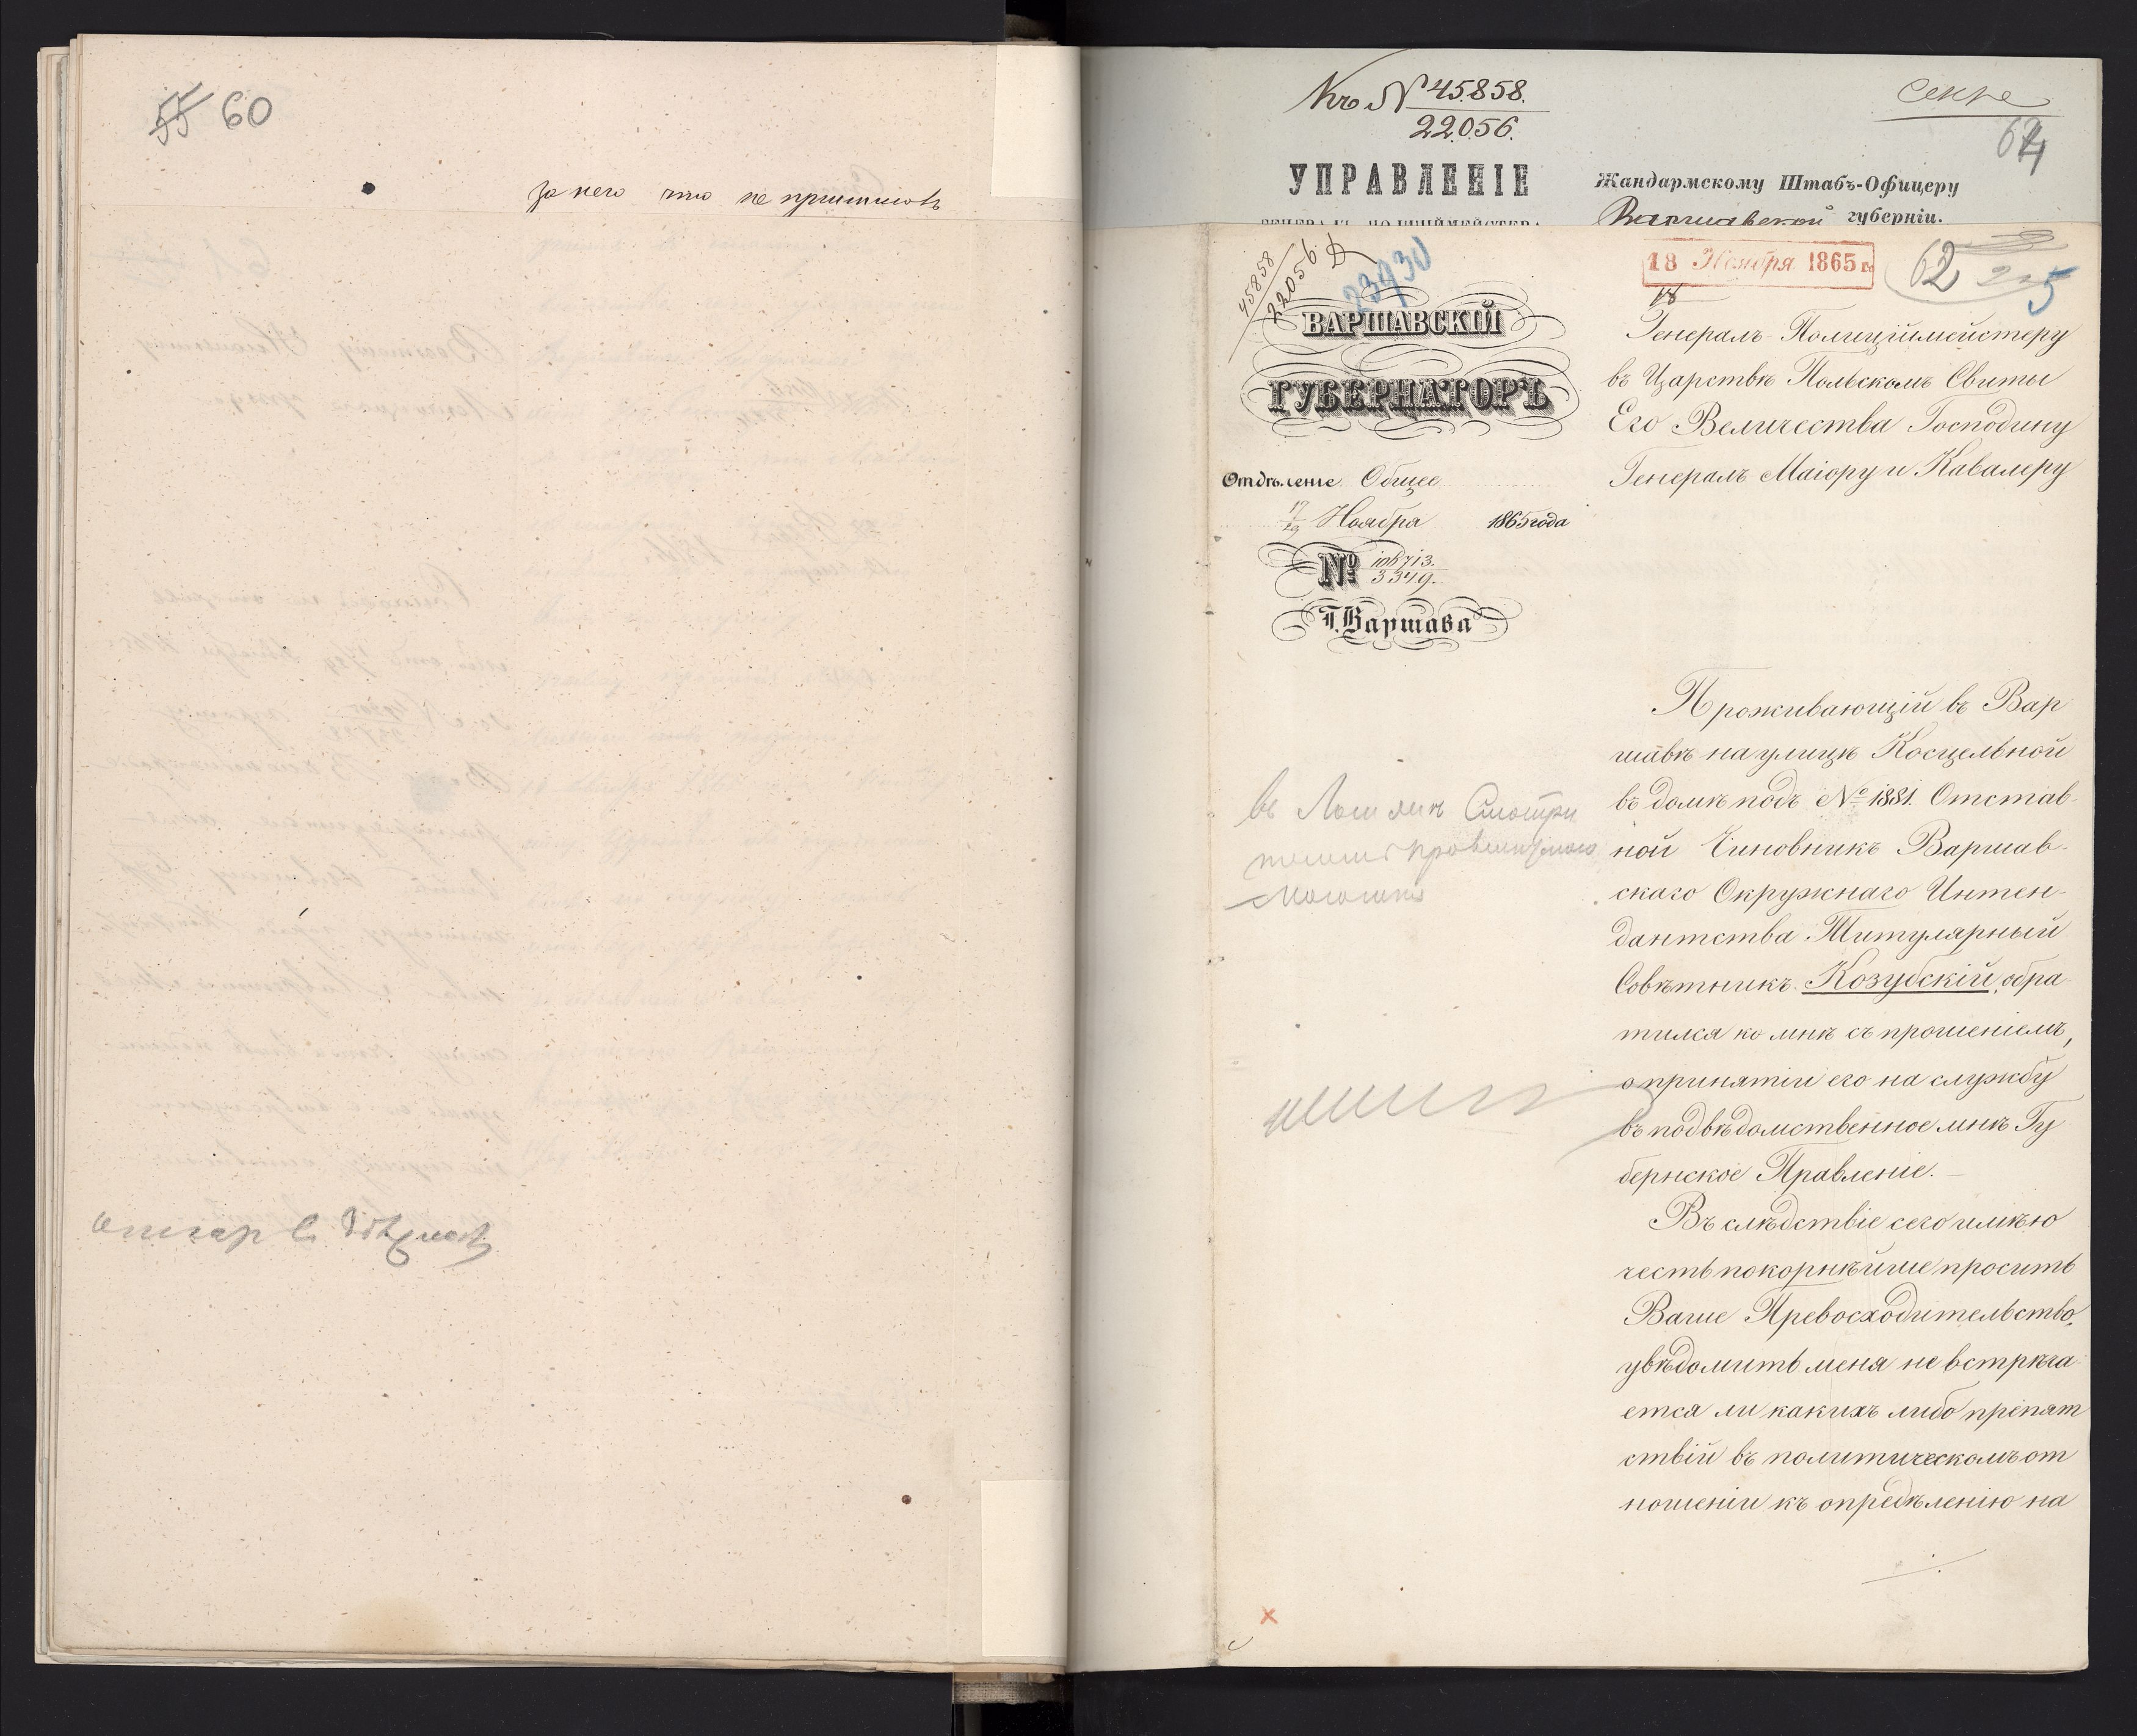 60
за него что не
Къ № 45.858.
22.056.
УПРАВЛЕНІЕ
Секре
Жандармскому Штабъ-Офицеру
Варшавской губерніи.
45858
22056
23930
18 Ноября 1865 г.
62
5
ВАРШАВСКІЙ
ГУБЕРНАТОРЪ
Отдѣленіе Общее
17/29 Ноября 1865 года
№
3349.
Г. Варшава
Генералъ-Полиціймейстеру
въ Царствѣ Польскомъ Свиты
Его Величества Господину
Генералъ Маіору и Кавалеру
Проживающій въ Вар
шавѣ на улицѣ Косцельной
въ домѣ подъ № 1881. Отстав-
ной Чиновникъ Варшав-
скаго Окружнаго Интен-
дантства Титулярный
Совѣтникъ Козубскій, обра-
тился ко мнѣ съ прошеніемъ,
о принятіи его на службу
въ подвѣдомственное мнѣ Гу
бернское Правленіе. —
Въ слѣдствіе сего имѣю
честь покорнѣйше просить
Ваше Превосходительство,
увѣдомить меня не встрѣча-
ется ли какихъ либо препят
ствій въ политическомъ от
ношеніи къ опредѣленію на